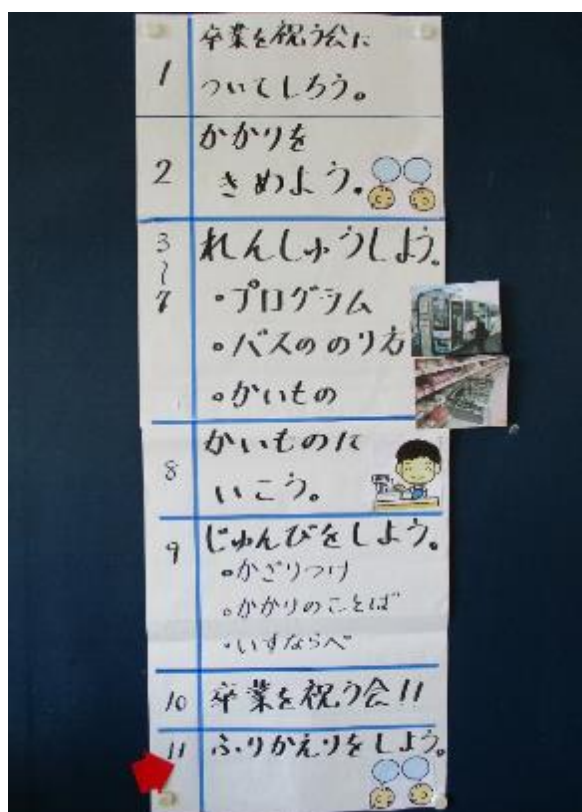 1
卒業を祝う会に
ついてしろう。
2
かかりを
きめよう。
3〜7
れんしゅうしよう。
・プログラム
・バスののり方
・かいもの
8
かいものに
いこう。
9
じゅんびをしよう。
・かざりつけ
・かかりのことば
・いすならべ
10
卒業を祝う会!!
11
ふりかえりをしよう。